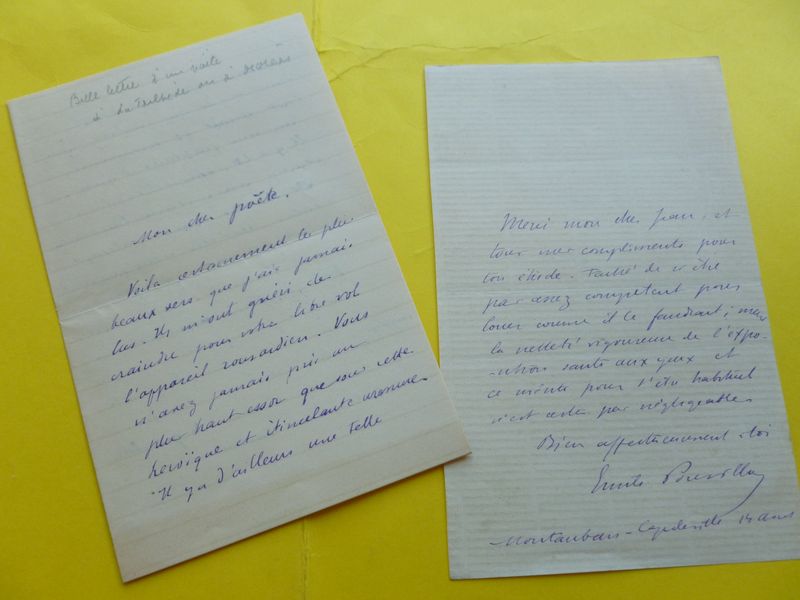 Belle lettre à un poète
à La Tailhède ou à Moréas
Mon cher poète.
Voilà certainement les plus
beaux vers que j'aie jamais
lus. Ils m'ont guéri de
craindre pour votre libre vol
l'appareil ronsardien. Vous
n'avez jamais pris un
plus haut essor que sous cette
heroïque et étincelante armure.
Il y a d'ailleurs une telle
Merci mon cher Jean, et
tous mes compliments pour
ton étude. Je de n'être
pas assez compétent pour
louer comme il le faudrait; mais
la netteté vigoureuse de l'expo-
-sition saute aux yeux et
ce mérite pour t'être habituel
n'est certes pas négligeable.
Bien affectueusement à toi
Emile Pouvillon
Montauban - Capdeville 14 aout